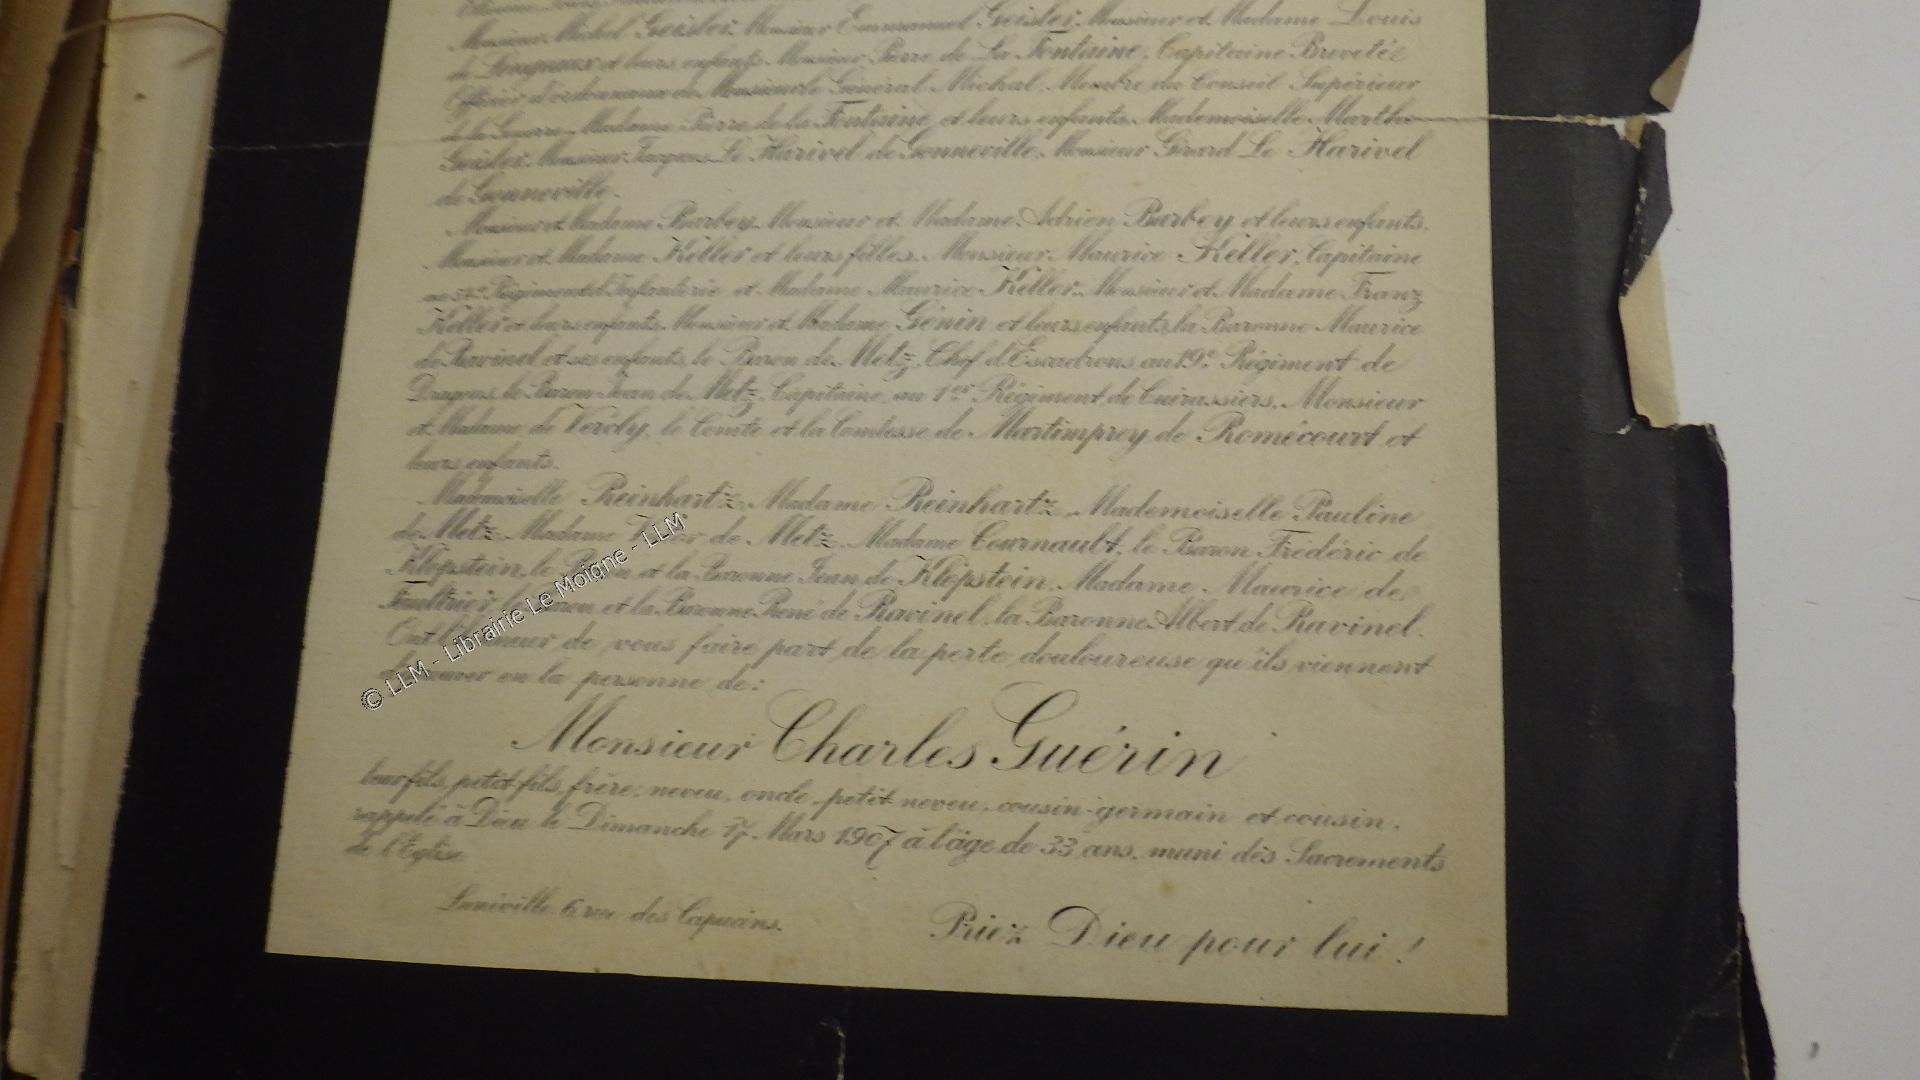 Monsieur Michel Geisler, Monsieur Emmanuel Geisler, Monsieur et Madame Louis
de et leurs enfants, Monsieur Pierre de La Fontaine, Capitaine Breveté
Officier d'ordonnance de Monsieur le Général Michal, Membre du Conseil Supérieur
de la Guerre, Madame Pierre de la Fontaine et leurs enfants, Mademoiselle Marthe
Geisler, Monsieur Jacques Le Harivel de Gonneville, Monsieur Gérard Le Harivel
de Gonneville.
Monsieur et Madame Barbey, Monsieur et Madame Adrien Barbey et leurs enfants,
Monsieur et Madame Keller et leurs filles, Monsieur Maurice Keller, Capitaine
au Régiment d'Infanterie et Madame Maurice Keller, Monsieur et Madame Franz
Keller et leurs enfants, Monsieur et Madame Génin et leurs enfants, la Baronne Maurice
de Ravinel et ses enfants, le Baron de Metz, Chef d'Escadrons au 19e Régiment de
Dragons, le Baron Jean de Metz, Capitaine au 1er Régiment de Cuirassiers, Monsieur
et Madame de Vercly, le Comte et la Comtesse de Martimprey de Romécourt et
leurs enfants.
Mademoiselle Reinhartz, Madame Reinhartz, Mademoiselle Pauline
de Metz, Madame de Metz, Madame Cournault, le Baron Frédéric de
Klopstein, le Baron et la Baronne Jean de Klopstein, Madame Maurice de
Faultrier, le Baron et la Baronne René de Ravinel, la Baronne Albert de Ravinel.
Ont l'honneur de vous faire part de la perte douloureuse qu'ils viennent
d'éprouver en la personne de:
Monsieur Charles Guérin
leur fils, petit-fils, frère, neveu, oncle, petit neveu, cousin-germain et cousin.
rappelé à Dieu le Dimanche 17 Mars 1907 à l'âge de 33 ans, muni des Sacrements
de l'Eglise.
Lunéville, 6, rue des Capucins.
Priez Dieu pour lui !
© LLM - Librairie Le Moigne - LLM